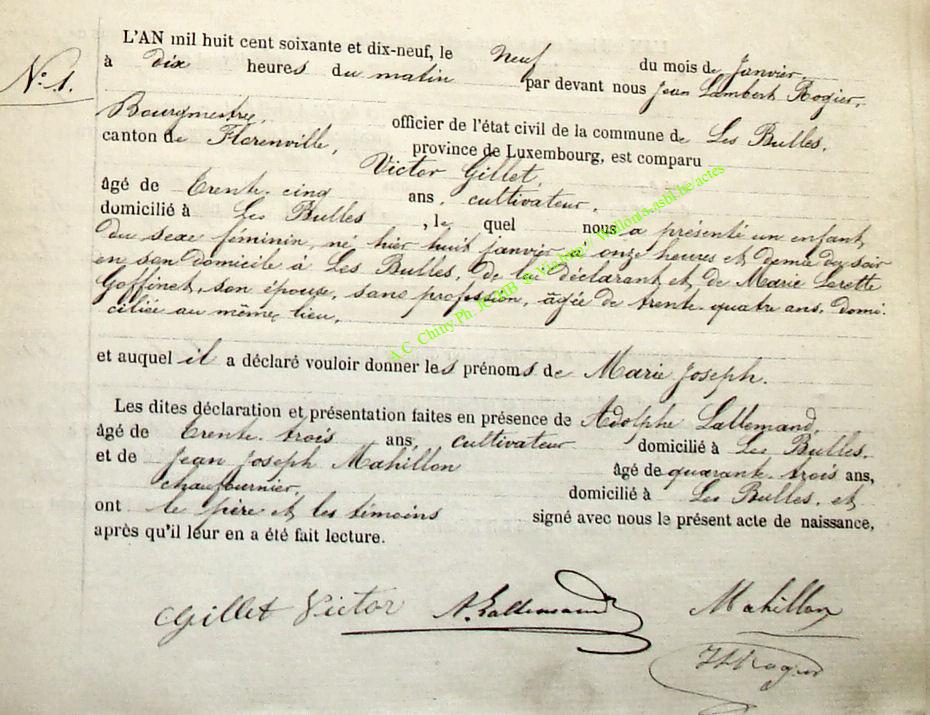 N.o 1.
L'AN mil huit cent soixante et dix-neuf, le Neuf du mois de Janvier,
à dix heures du matin par devant nous Jean Lambert Rogier,
Bourgmestre,
officier de l'état civil de la commune de Les Bulles,
canton de Florenville, province de Luxembourg, est comparu
Victor Gillet,
âgé de trente-cinq ans, cultivateur,
domicilié à Les Bulles, le quel nous a présenté un enfant
du sexe féminin, né hier huit janvier à onze heures et demie du soir
en son domicile à Les Bulles, de lui déclarant et de Marie Lorette
Goffinet, son épouse, sans profession, âgée de trente quatre ans, domi-
ciliée au même lieu.
A.C. Chiny Ph.
Wallonia-asbl.be/actes
et auquel il a déclaré vouloir donner les prénoms de Marie Joseph.
Les dites déclaration et présentation faites en présence de Adolphe Lallemand,
âgé de trente-trois ans, cultivateur domicilié à Les Bulles.
et de Jean Joseph Mahillon âgé de quarante-trois ans,
chaufournier, domicilié à Les Bulles. et
ont le père et les témoins signé avec nous le présent acte de naissance,
après qu'il leur en a été fait lecture.
Gillet Victor A. Lallemand Mahillon